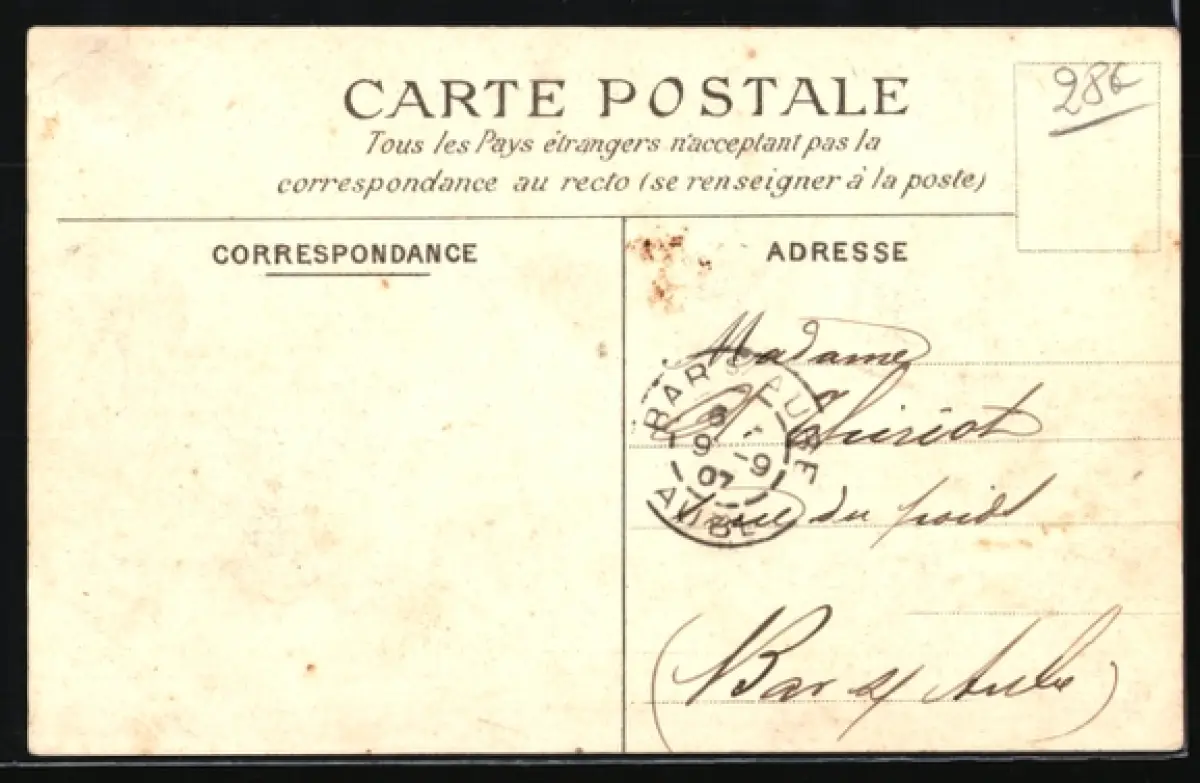 CARTE POSTALE
Tous les Pays étrangers n'acceptant pas la
correspondance au recto (se renseigner à la poste)
CORRESPONDANCE
ADRESSE
286
Madame
Thiriot
rue du poids
(Bar s/ Aube)
BAR S AUBE
9 - 9
07
AUBE